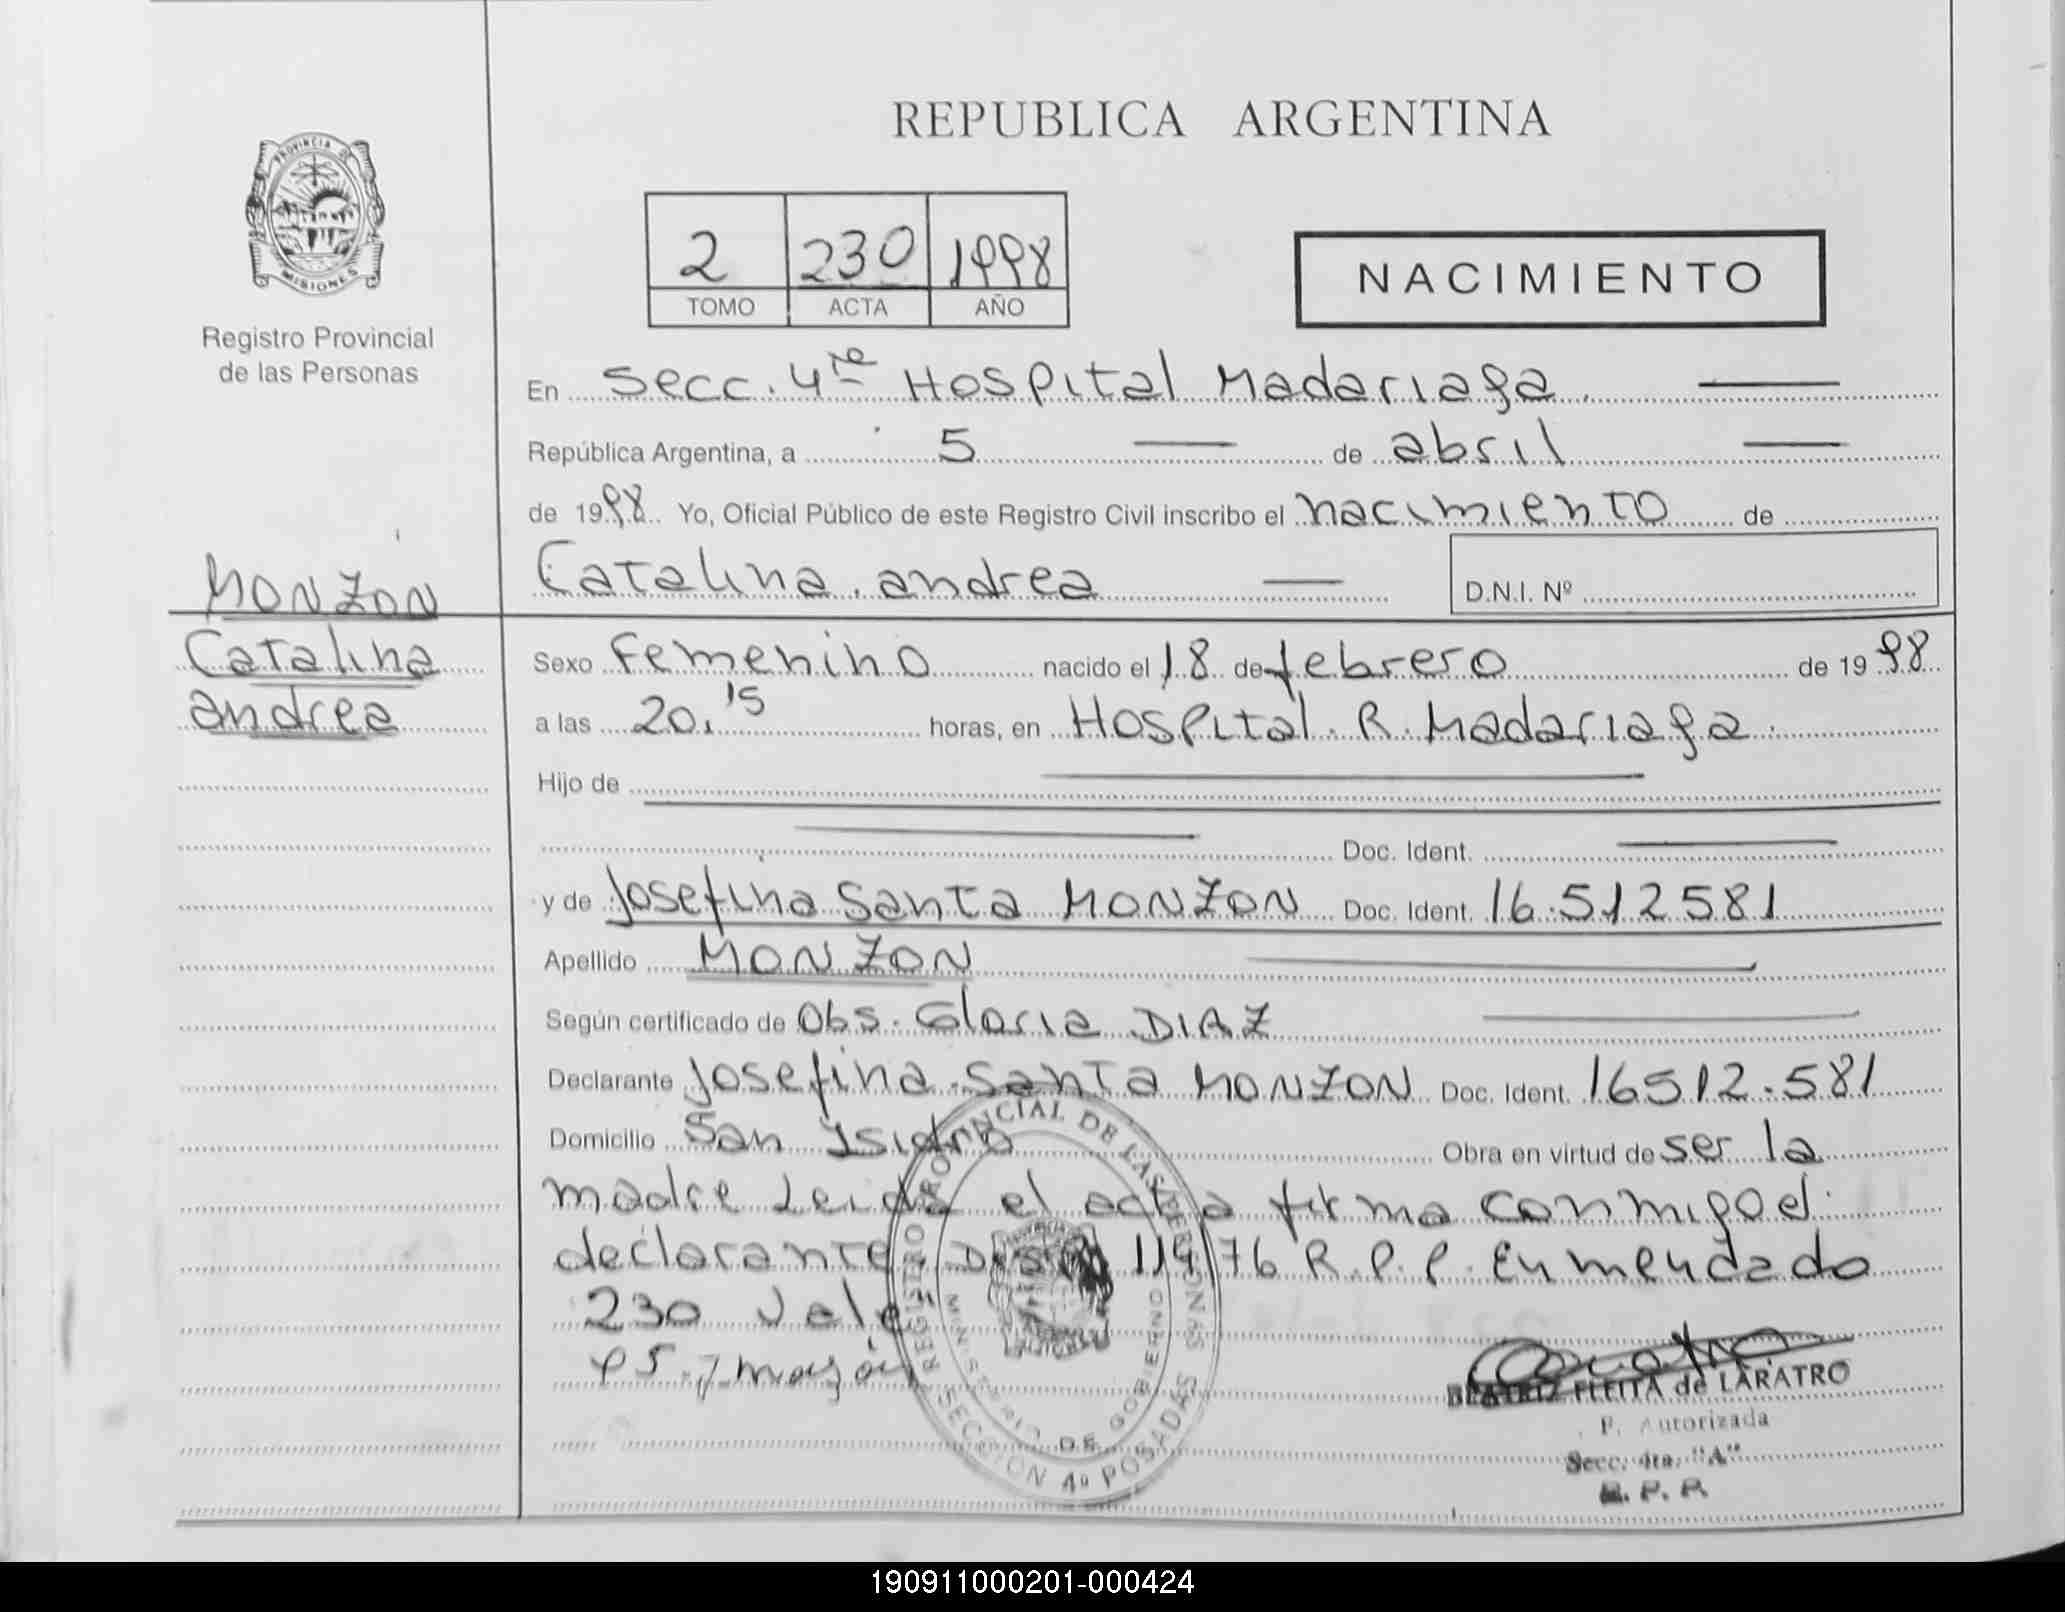 REPUBLICA ARGENTINA
PROVINCIA DE
MISIONES
Registro Provincial
de las Personas
2 230 1998
TOMO ACTA AÑO
NACIMIENTO
En Secc. 4ta Hospital Madariaga.
República Argentina, a 5 de abril
de 1998 Yo, Oficial Público de este Registro Civil inscribo el nacimiento de
Catalina andrea
D.N.I. Nº
MONZON
Catalina
andrea
Sexo Femenino nacido el 18 de febrero de 1998
a las 20,15 horas, en Hospital R. Madariaga.
Hijo de
Doc. Ident.
y de Josefina Santa MONZON Doc. Ident. 16.512581
Apellido MONZON
Según certificado de Obs. Gloria DIAZ
Declarante Josefina Santa MONZON Doc. Ident. 16512.581
Domicilio San Isidro Obra en virtud de ser la
madre Leida el acta firma conmigo el
declarante 76 R.P.P. Enmendado
230 Vale
REGISTRO PROVINCIAL DE LAS PERSONAS
MINISTERIO DE GOBIERNO
SECCION 4º POSADAS
BEATRIZ FLEITA de LARATRO
F. Autorizada
Secc. 4ta. "A"
R. P. P.
190911000201-000424